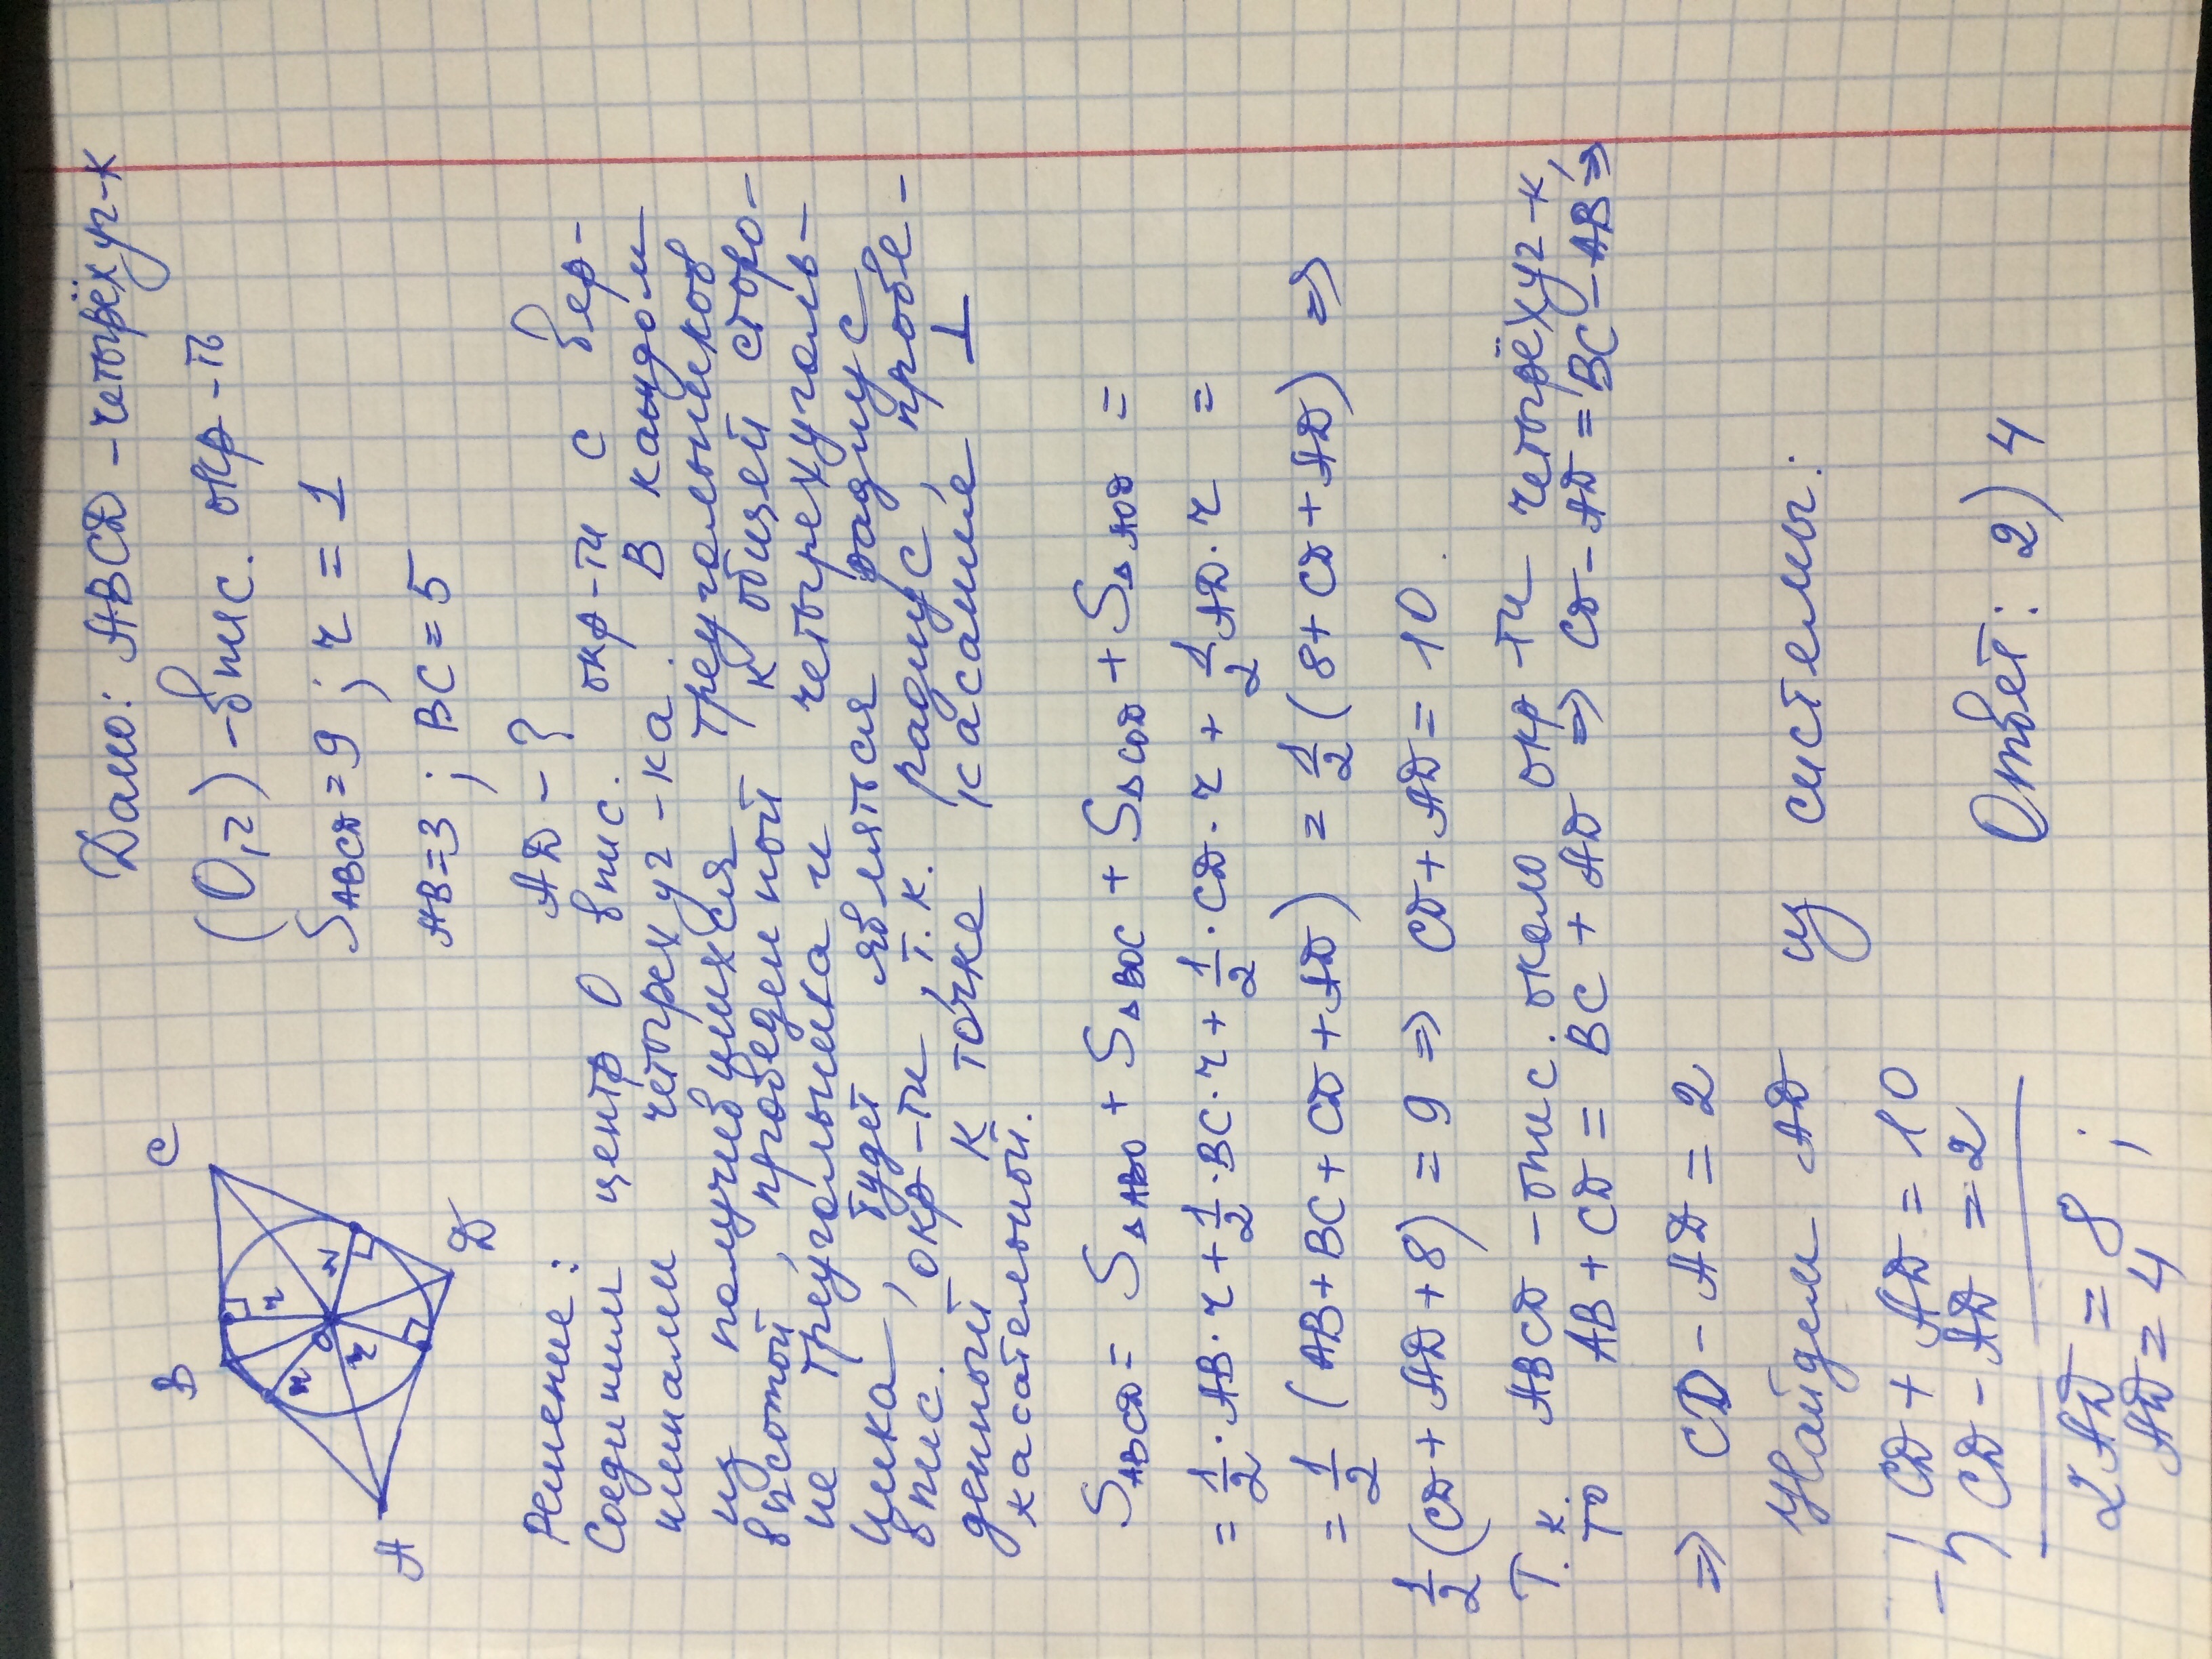 B C
A D
O r r r r
Дано: ABCD - четырёхуг-к
(O, r) - впис. окр-ть
S ABCD = 9 ; r = 1
AB = 3 ; BC = 5
AD - ?
Решение:
Соединим центр O впис. окр-ти с вер-
шинами четырехуг-ка. В каждом
из получившихся треугольников
высотой, проведенной к общей сторо-
не треугольника и четырехуголь-
ника, будет являться радиус
впис. окр-ти, т.к. радиус, прове-
денный к точке касания ⊥
касательной.
S ABCD = S△ABO + S△BOC + S△COD + S△AOD =
= 1/2 · AB · r + 1/2 · BC · r + 1/2 · CD · r + 1/2 AD · r =
= 1/2 (AB + BC + CD + AD) = 1/2 (8 + CD + AD) ⇒
1/2 (CD + AD + 8) = 9 ⇒ CD + AD = 10.
Т.к. ABCD - опис. около окр-ти четырёхуг-к,
то AB + CD = BC + AD ⇒ CD - AD = BC - AB ⇒
⇒ CD - AD = 2
Найдем AD из системы:
- { CD + AD = 10
CD - AD = 2
2AD = 8 ;
AD = 4
Ответ: 2) 4